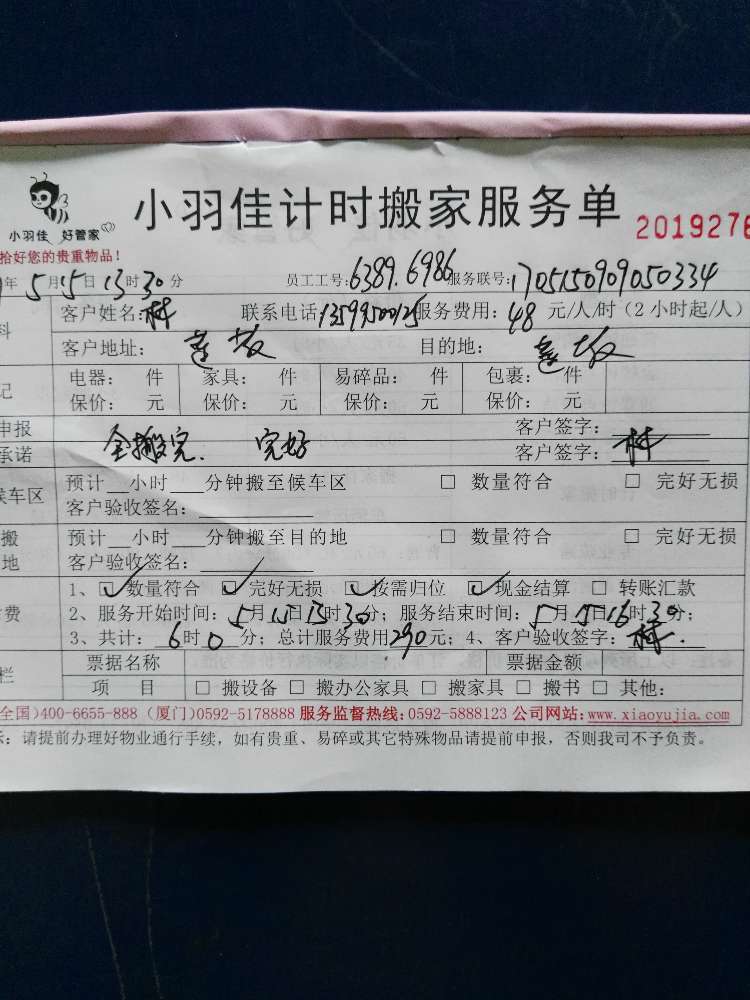 小羽佳计时搬家服务单
2019276
小羽佳 好管家
拾好您的贵重物品！
年5月15日13时30分 员工工号：6389.6986 服务联号：1705150909050334
客户姓名：林 联系电话 服务费用：48 元/人/时（2小时起/人）
客户地址： 莲坂 目的地： 莲坂
电器： 件 家具： 件 易碎品： 件 包裹： 件
保价： 元 保价： 元 保价： 元 保价： 元
申报 客户签字：
承诺 全搬完. 完好 客户签字：林
候车区 预计___小时___分钟搬至候车区 □ 数量符合 □ 完好无损
客户验收签名：
搬 预计___小时___分钟搬至目的地 □ 数量符合 □ 完好无损
地 客户验收签名：
1、☑ 数量符合 ☑ 完好无损 ☑ 按需归位 ☑ 现金结算 □ 转账汇款
费 2、服务开始时间：5月15日13时30分；服务结束时间：5月15日16时30分；
3、共计：6时0分；总计服务费用290元；4、客户验收签字：林.
栏 票据名称 票据金额
项 目 □ 搬设备 □ 搬办公家具 □ 搬家具 □ 搬书 □ 其他：
全国)400-6655-888 (厦门)0592-5178888 服务监督热线：0592-5888123 公司网站：www.xiaoyujia.com
：请提前办理好物业通行手续，如有贵重、易碎或其它特殊物品请提前申报，否则我司不予负责。